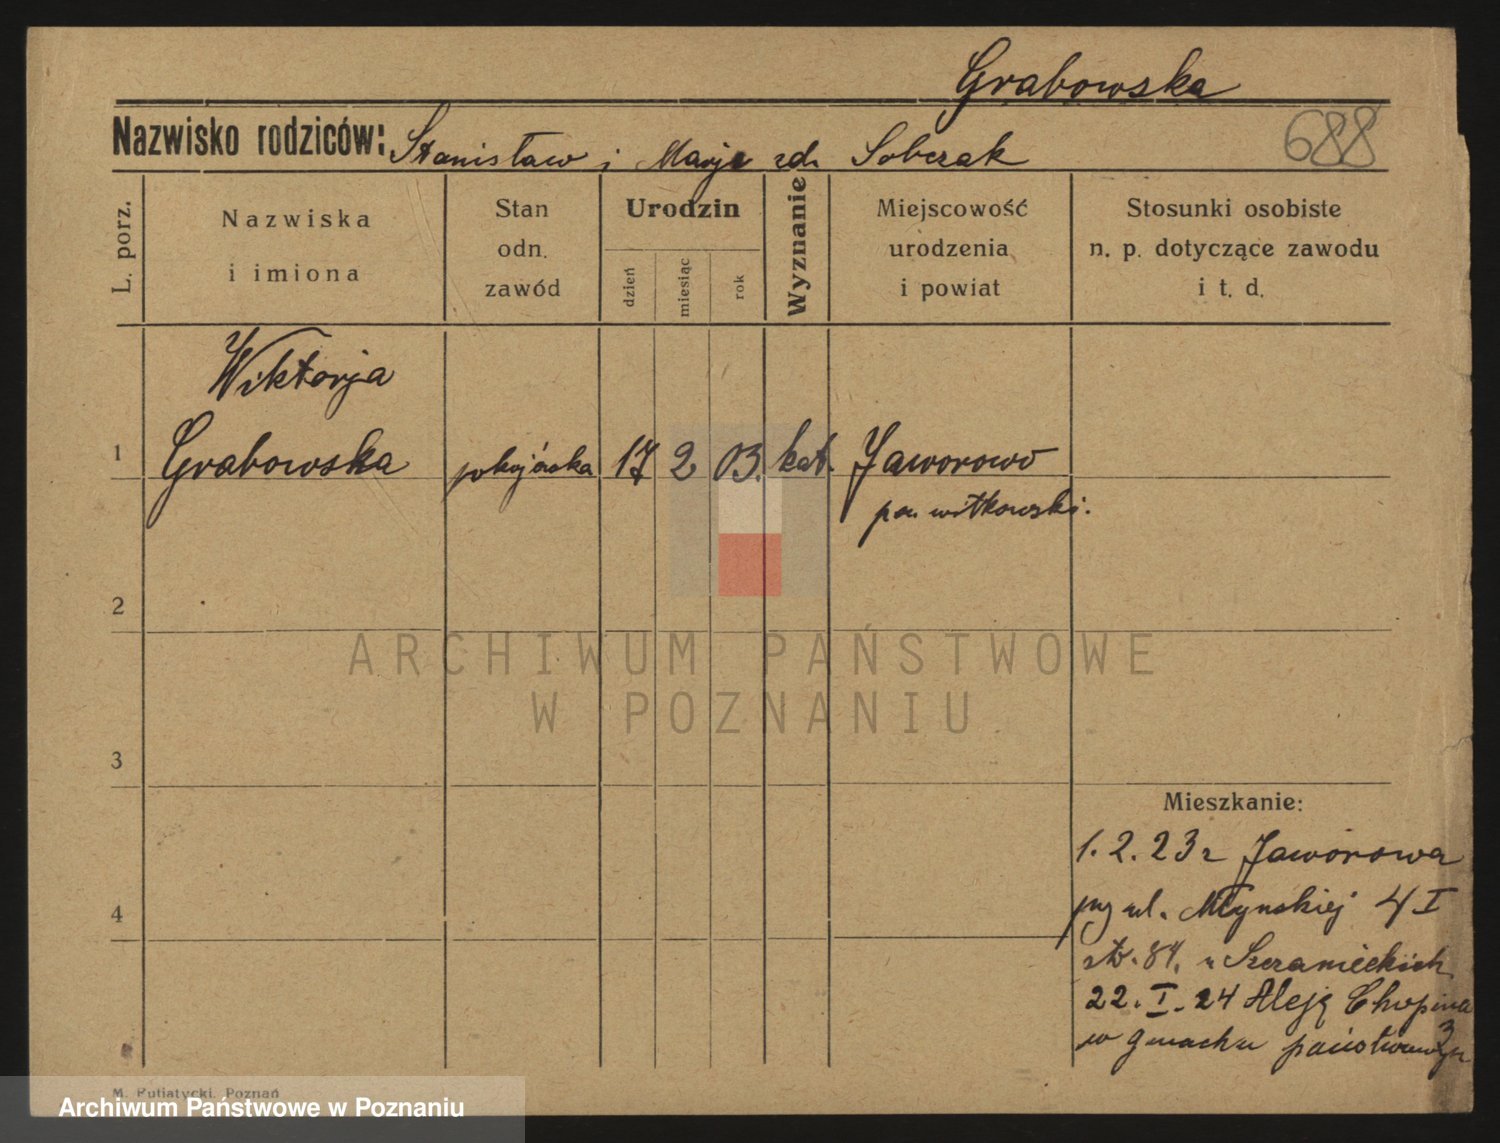 Grabowska
Nazwisko rodziców: Stanisław i Marja zd. Sobczak
688
L. porz.
Nazwiska
i imiona
Stan
odn.
zawód
Urodzin
dzień
miesiąc
rok
Wyznanie
Miejscowość
urodzenia
i powiat
Stosunki osobiste
n. p. dotyczące zawodu
i t. d.
Wiktorja
1 Grabowska pokojówka 17 2 03. kat. Jaworowo
pow. witkowski.
2
3
4
Mieszkanie:
1. 2. 23 z Jaworowa
ul. Młyńskiej 4 I
str. 84. u Szczanieckich
22. I. 24 Aleję Chopina 3
w gmachu państwowym
M. Putiatycki, Poznań
ARCHIWUM PAŃSTWOWE
W POZNANIU
Archiwum Państwowe w Poznaniu